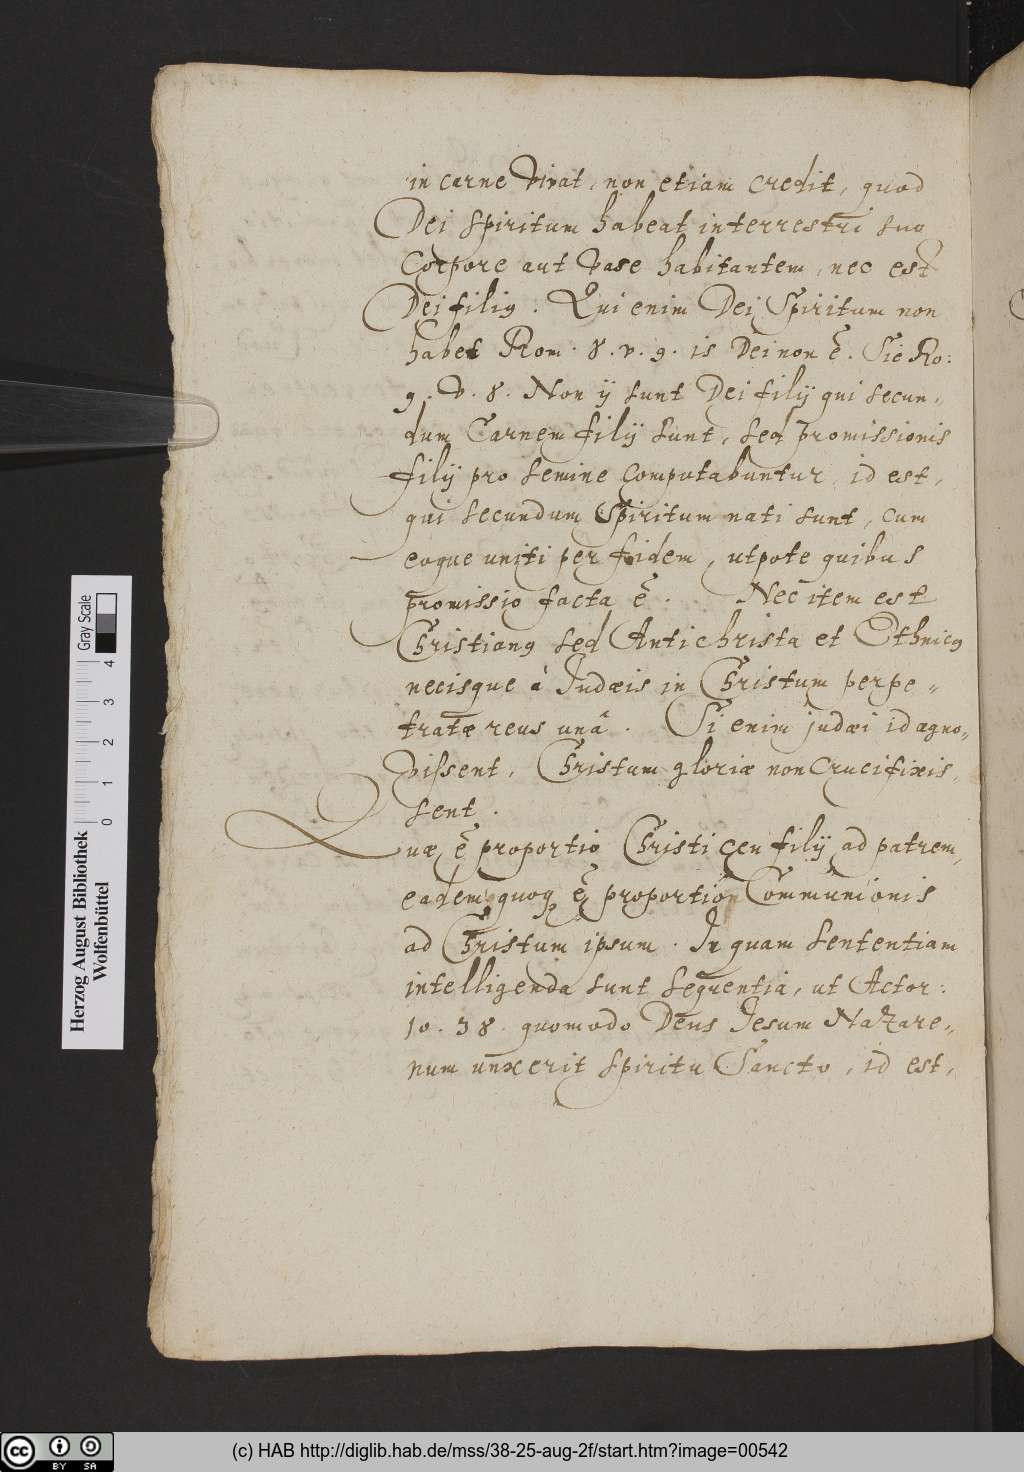 in carne vivat, non etiam credit, quod
Dei spiritum habeat in terrestri suo
Corpore aut vase habitantem, nec est
Dei filiꝰ. Qui enim Dei Spiritum non
habet Rom. 8. v. 9. is Dei non ē. Sic Ro:
9. v. 8. Non ij sunt Dei filij qui secun„
dum Carnem filij sunt, sed promissionis
filij pro semine computabuntur, id est,
qui secundum Spiritum nati sunt, cum
eoque uniti per fidem, utpote quibus
promissio facta ē. Nec item est
Christianꝰ sed Antichrista et Ethnicꝰ
necisque à Judæis in Christum perpe„
tratæ reus unâ. Si enim judæi id agno„
vissent, Christum gloriæ non Crucifixis„
sent.
Quæ ē proportio Christi ceu filij ad patrem,
eadem quoqꝫ ē proportio Communionis
ad Christum ipsum. In quam sententiam
intelligenda sunt sequentia, ut Actor:
10. 38. quomodo Deus Jesum Nazare„
num unxerit spiritu Sancto, id est,
Herzog August Bibliothek
Wolfenbüttel
0 1 2 3 4
Gray Scale
cc BY SA
(c) HAB http://diglib.hab.de/mss/38-25-aug-2f/start.htm?image=00542